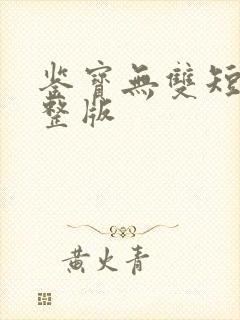 鉴宝無雙短
整版
黄火青